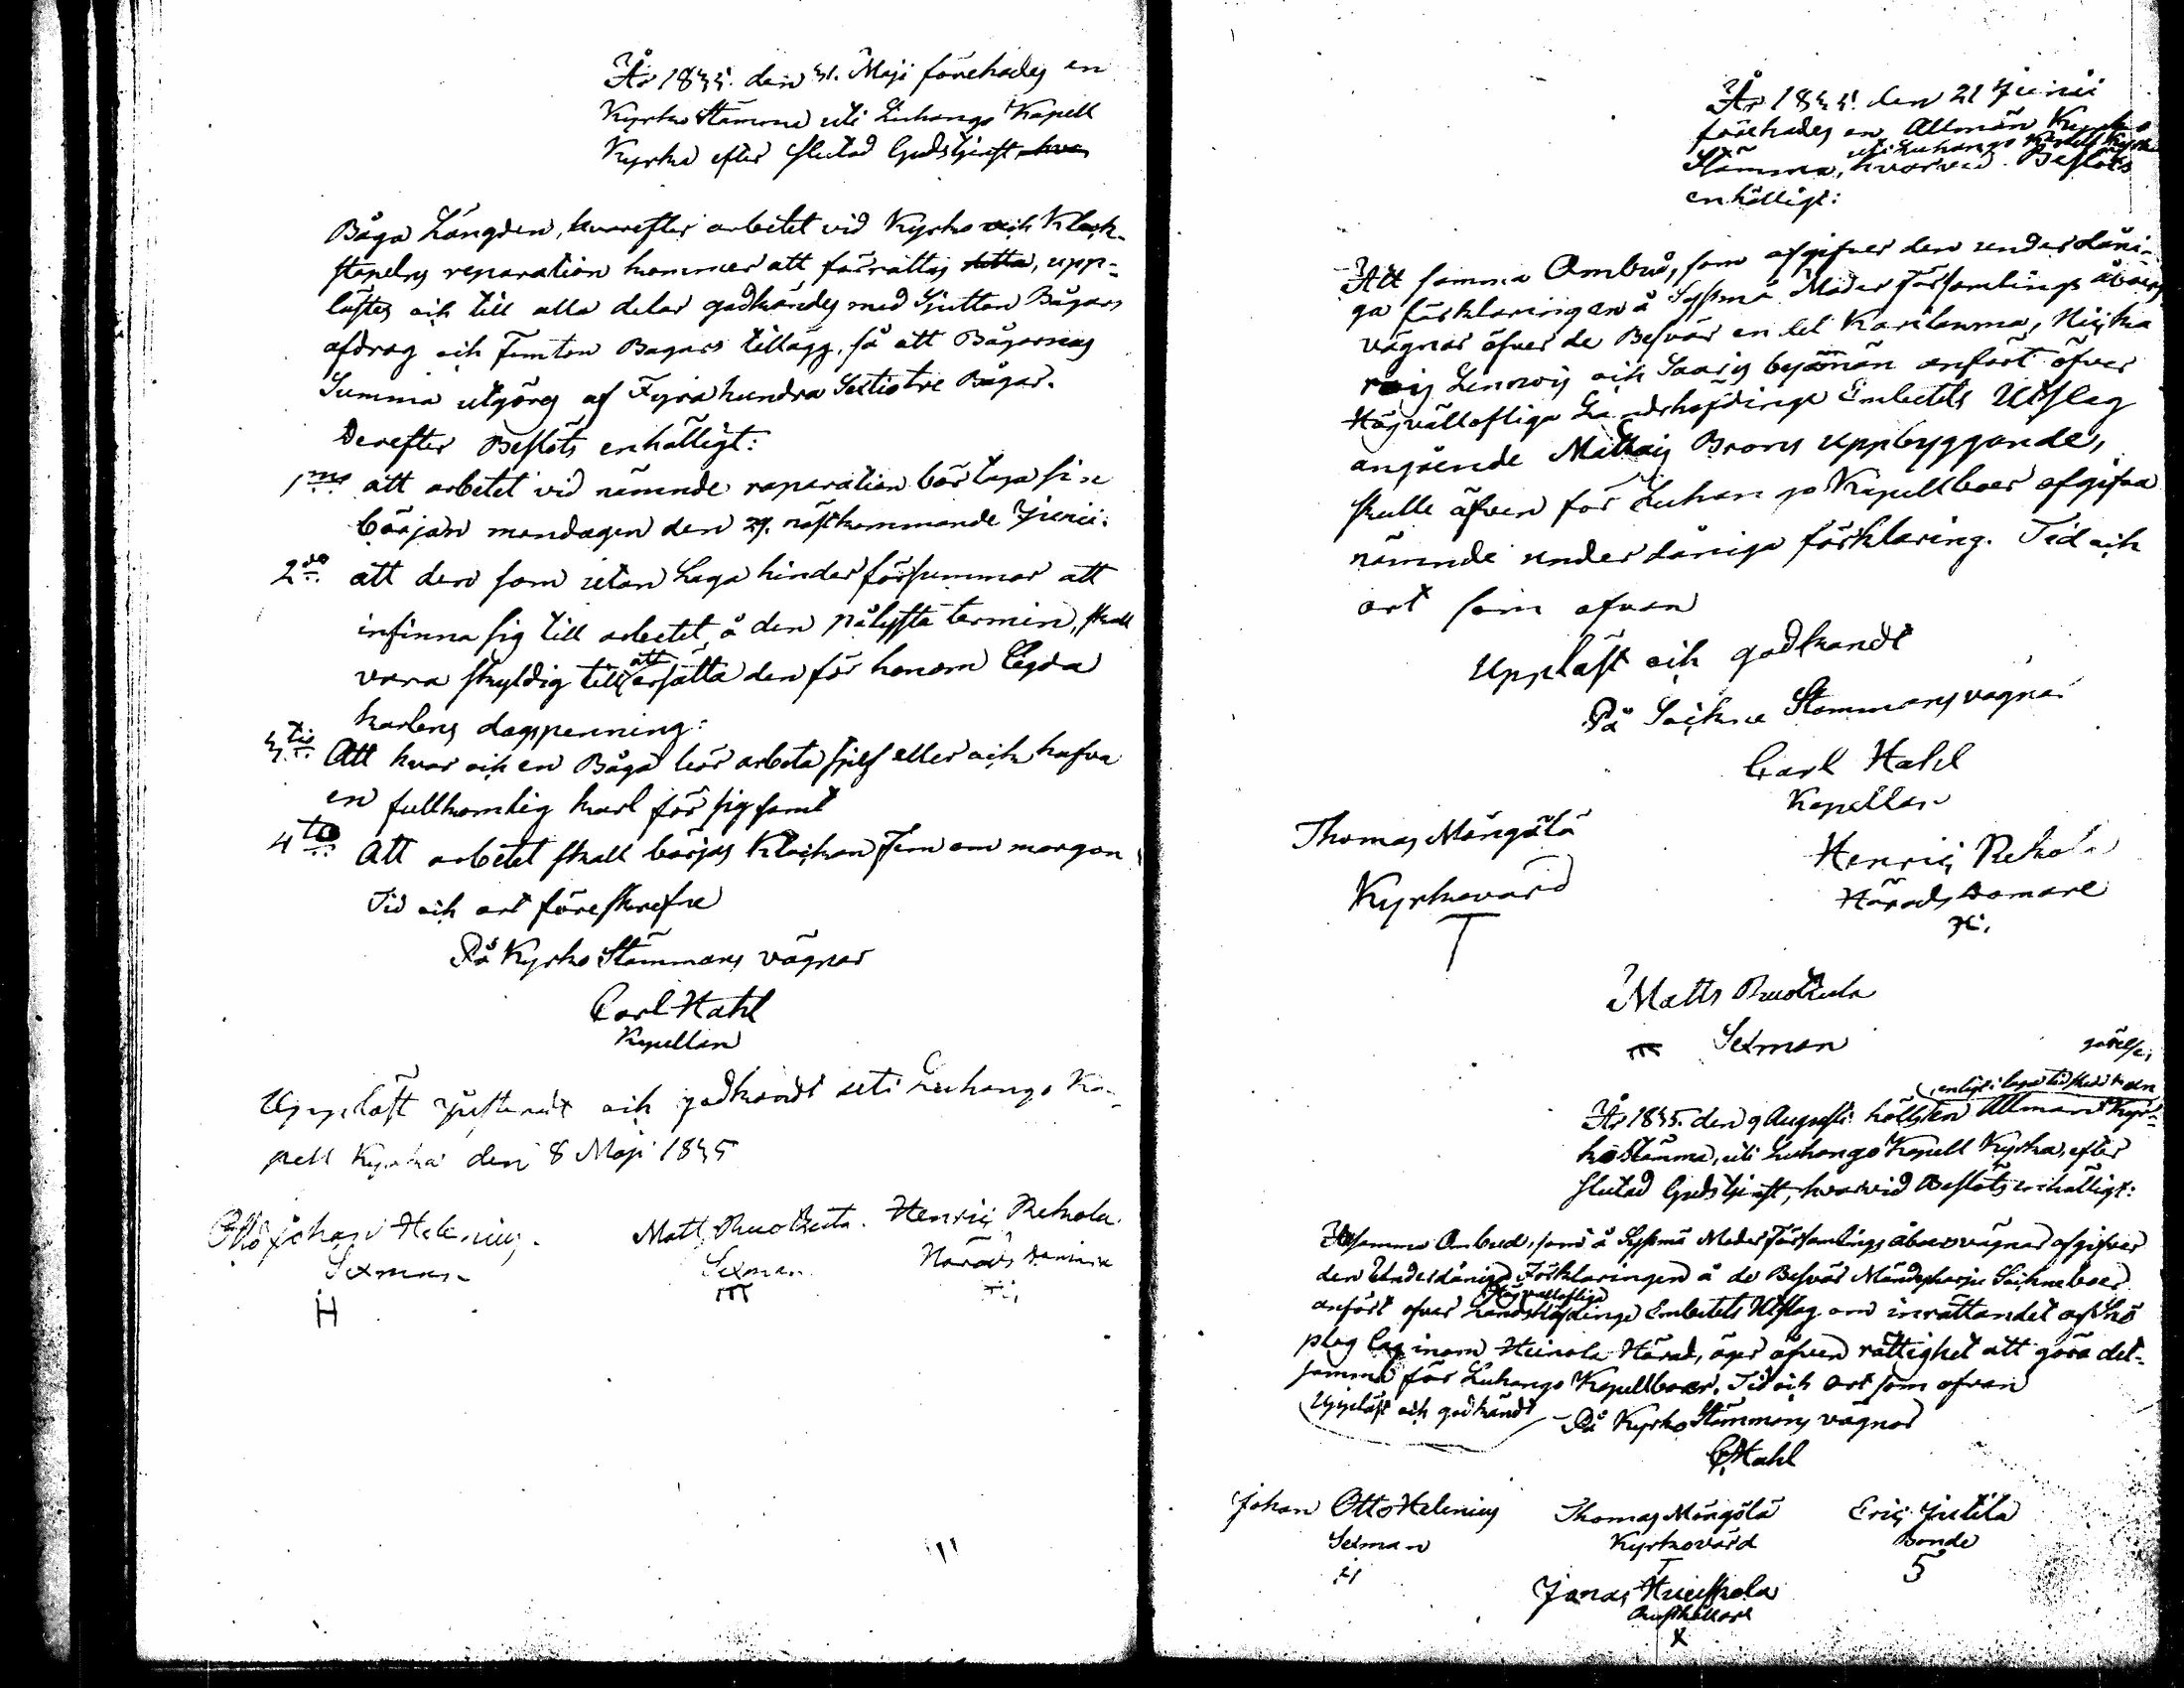 År 1835. den 31. Maji förehades en
Kyrko Stämma uti Luhango Kapell
Kyrka efter slutad Gudstjenst
Båga Längden, hvarefter arbetet vid Kyrko och Klock-
stapelns reparation kommer att förrättas, upp-
lästes och till alla delar godkändes med Sjutton Bågars
afdrag och Femton Bagars tillägg, så att Bågarnas
Summa utgöres af Fyrahundra Sextiotre Bågar.
Derefter Beslöts enhälligt:
1mo att arbetet vid nämnde reparation bör taga sin
början mondagen den 29. nästkommande Junii.
2do att den som utan Laga hinder försummar att
infinna sig till arbetet å den pålysta termin, skall
vara skyldig till att ersätta den för honom legda
karlens dagspenning:
3tio Att hvar och en Båga bör arbeta sjelf eller ock hafva
en fullkomlig karl för sig samt
4to Att arbetet skall börjas Klockan Fem om morgon
Tid och ort föreskrefne
På Kyrko Stämmans vägnar
Carl Hahl
Kapellan
Uppläst justerat och godkändt uti Luhango Ka-
pell Kyrka den 8 Maji 1835
Otto Johan Helenius. Matts Ruokula. Henric Rekola.
Sexman Sexman Härads Domare
H m
År 1835. den 21 Junii
förehades en Allmän Kyrko
uti Luhango Kapell Kyrka
Stämma, hvarvid Beslöts
enhälligt:
Att samma Ombud, som afgifver den underdåni-
ga förklaringen å Sysmä Moder Församlings åboers
vägnar öfver de Besvär en del Karilanma,
Lenovis och Saaris byamän anfört öfver
Högvällofliga Landshöfdinge Embetets Utslag
angående Mattas Brons uppbyggande,
skulle äfven för Luhango Kapellboer afgifva
nämnde underdåniga förklaring. Tid och
ort som ofvan
Uppläst och godkändt
På Sockne Stämmans vägnar
Carl Hahl
Kapellan
Thomas Mångälä Henric Rekola
Kyrkovärd Härads Domare
T
Matts Ruokula
m Sexman
enligt i laga tid skedd kun
görelse,
År 1835. den 9 Augusti hölls en Allmän Kyr-
koStämma, uti Luhango Kapell Kyrka, efter
slutad Gudstjenst, hvarvid Beslöts enhälligt:
Att samma Ombud, som å Sysmä Moder Församlings åboers vägnar afgifver
den Underdåniga Förklaringen å de Besvär Mändyharju Sockneboer
Högvällofliga
anfört öfver Landshöfdinge Embetets Utslag om inrättandet af Snö
plog lag inom Heinola Härad, äger äfven rättighet att göra det-
samma för Luhango Kapellboer. Tid och ort som ofvan
Uppläst och godkändt På Kyrko Stämmans vägnar
C. Hahl
Johan Otto Helenius Thomas Mångälä Eric Jutila
Sexman Kyrkovärd Bonde
H T 5
Jonas
Rusthållare
X